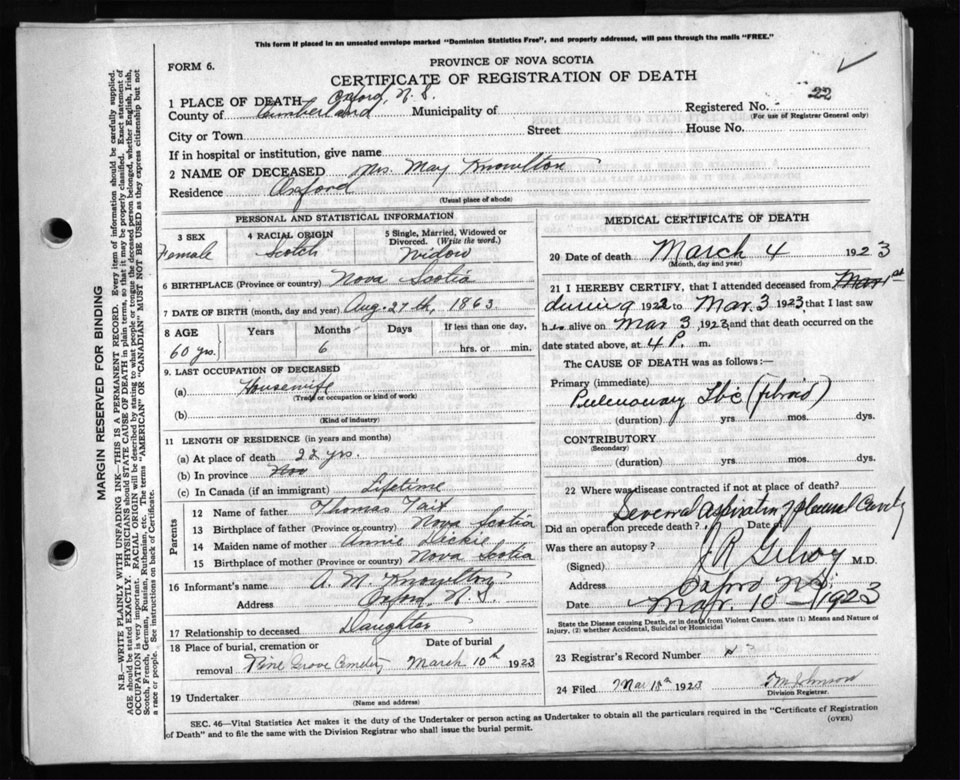 This form if placed in an unsealed envelope marked "Dominion Statistics Free", and properly addressed, will pass through the mails "FREE."
FORM 6.
PROVINCE OF NOVA SCOTIA
CERTIFICATE OF REGISTRATION OF DEATH
1 PLACE OF DEATH Oxford, N. S.
County of Cumberland Municipality of Registered No. 22
(For use of Registrar General only)
City or Town Street House No.
If in hospital or institution, give name
2 NAME OF DECEASED Mrs. May Knowlton
Residence Oxford
(Usual place of abode)
MARGIN RESERVED FOR BINDING
N.B.—WRITE PLAINLY WITH UNFADING INK—THIS IS A PERMANENT RECORD. Every item of information should be carefully supplied.
AGE should be stated EXACTLY. PHYSICIANS should STATE CAUSE OF DEATH in plain terms, so that it may be properly classified. Exact statement of
OCCUPATION is very important. RACIAL ORIGIN will be described by stating to what people or tongue the deceased person belonged, whether English, Irish,
Scotch, French, German, Russian, Ruthenian, etc. The terms "AMERICAN" OR "CANADIAN" MUST NOT BE USED as they express citizenship but not
a race or people. See instructions on back of Certificate.
PERSONAL AND STATISTICAL INFORMATION
3 SEX
Female
4 RACIAL ORIGIN
Scotch
5 Single, Married, Widowed or
Divorced. (Write the word.)
Widow
6 BIRTHPLACE (Province or country) Nova Scotia
7 DATE OF BIRTH (month, day and year) Aug. 27th, 1863
8 AGE Years Months Days If less than one day,
60 yrs. 6 hrs. or min.
9. LAST OCCUPATION OF DECEASED
(a) Housewife
(Trade or occupation or kind of work)
(b)
(Kind of industry)
11 LENGTH OF RESIDENCE (in years and months)
(a) At place of death 22 yrs.
(b) In province
(c) In Canada (if an immigrant) Lifetime
Parents
12 Name of father Thomas Tait
13 Birthplace of father (Province or country) Nova Scotia
14 Maiden name of mother Annie Dickie
15 Birthplace of mother (Province or country) Nova Scotia
16 Informant's name A. M. Knowlton
Address Oxford, N. S.
17 Relationship to deceased Daughter
18 Place of burial, cremation or Date of burial
removal Pine Grove Cemetery March 10th 1923
19 Undertaker
(Name and address)
MEDICAL CERTIFICATE OF DEATH
20 Date of death March 4 1923
(Month, day and year)
21 I HEREBY CERTIFY, that I attended deceased from
during 1922 to Mar. 3 1923, that I last saw
her alive on Mar 3 1923 and that death occurred on the
date stated above, at 4 P. m.
The CAUSE OF DEATH was as follows:—
Primary (immediate)
Pulmonary Tbc (fibroid)
(duration) yrs mos. dys.
CONTRIBUTORY
(Secondary)
(duration) yrs. mos. dys.
22 Where was disease contracted if not at place of death?
Several Aspiration Pleural Cavity
Did an operation precede death? Date of
Was there an autopsy?
(Signed) J. R. Gilroy M.D.
Address Oxford N.S.
Date Mar. 10— 1923
State the Disease causing Death, or in death from Violent Causes, state (1) Means and Nature of
Injury, (2) whether Accidental, Suicidal or Homicidal
23 Registrar's Record Number
24 Filed Mar 18th 1923 Johnson
Division Registrar.
SEC. 46—Vital Statistics Act makes it the duty of the Undertaker or person acting as Undertaker to obtain all the particulars required in the "Certificate of Registration
of Death" and to file the same with the Division Registrar who shall issue the burial permit.
(OVER)